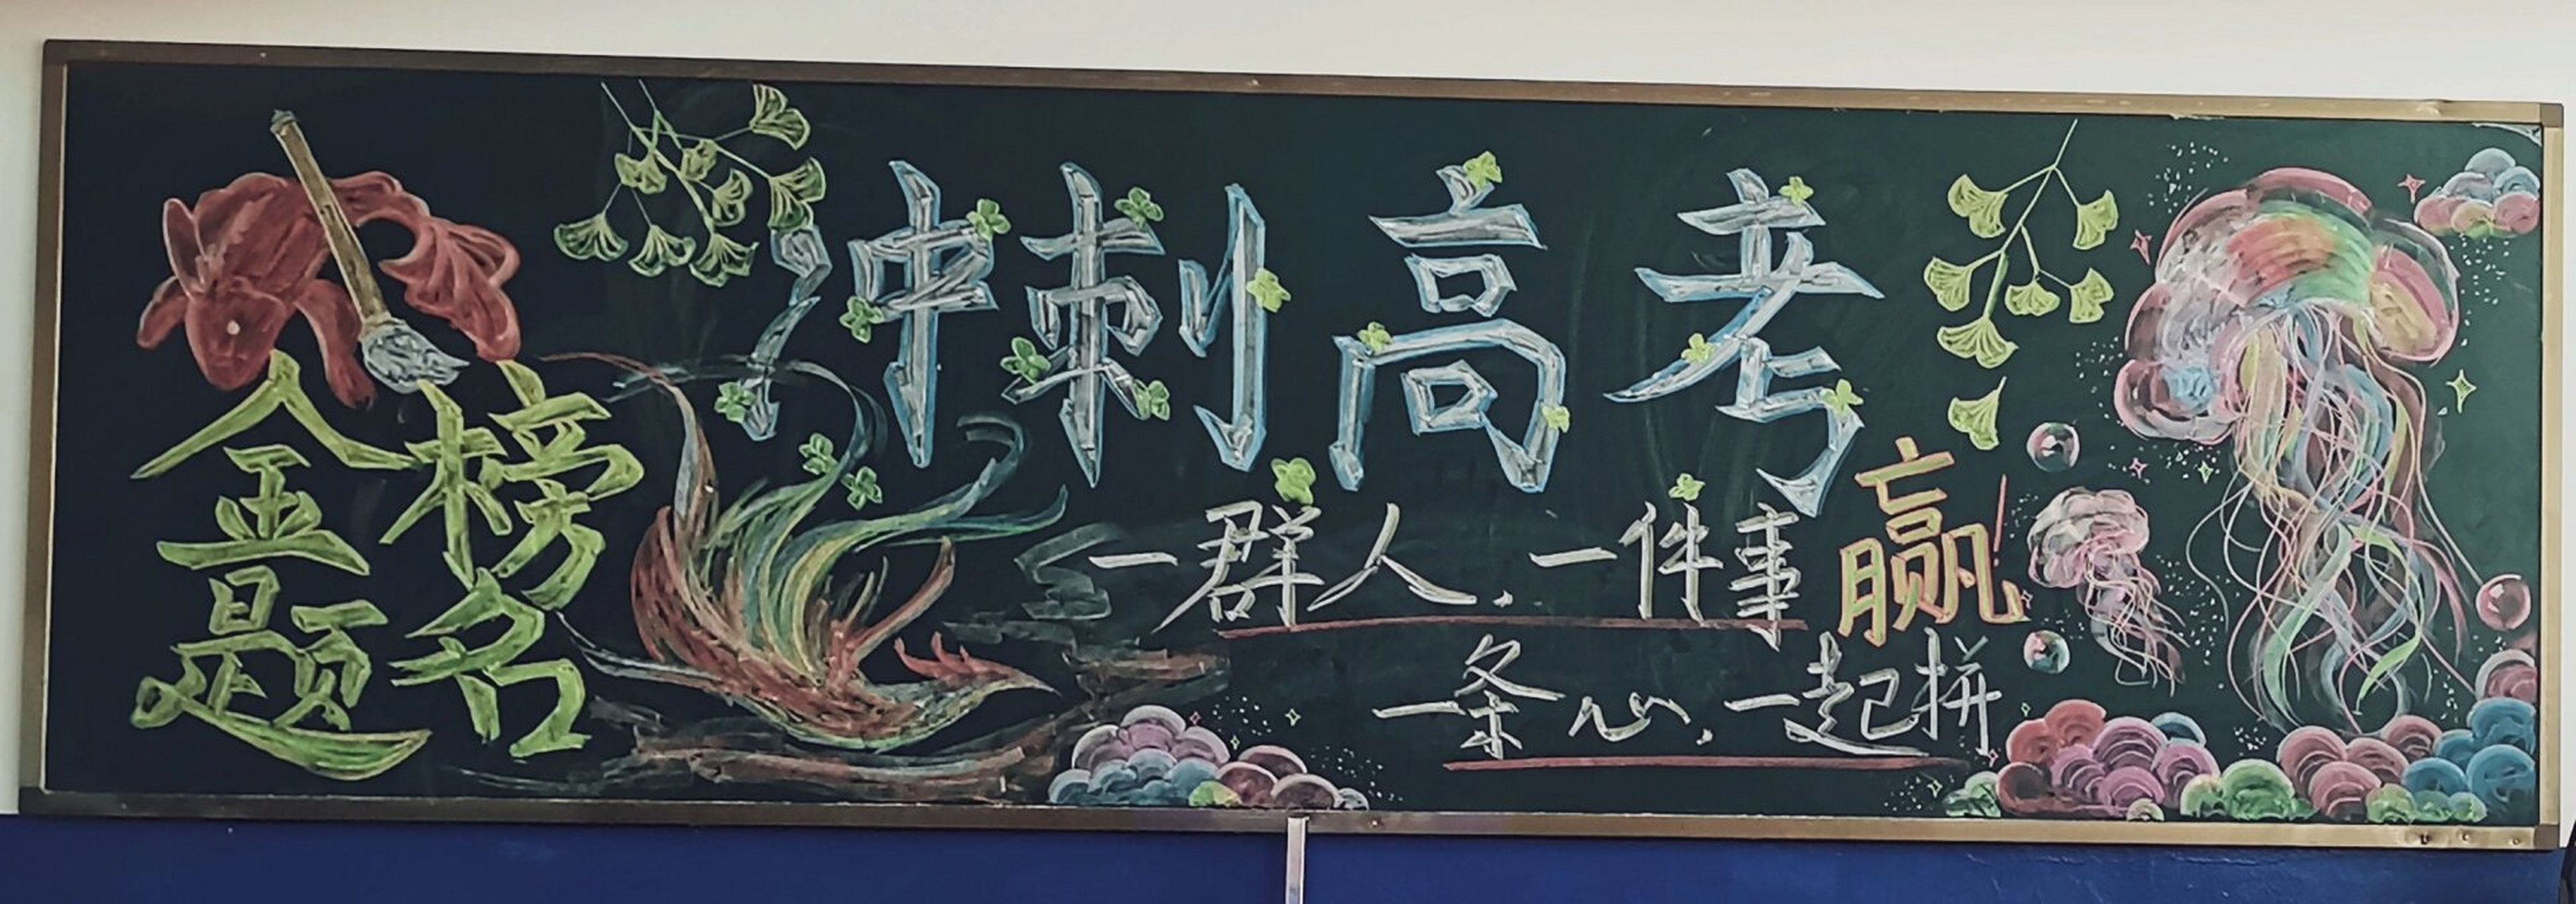 冲刺高考
金榜
题名
一群人.一件事赢!
一条心.一起拼